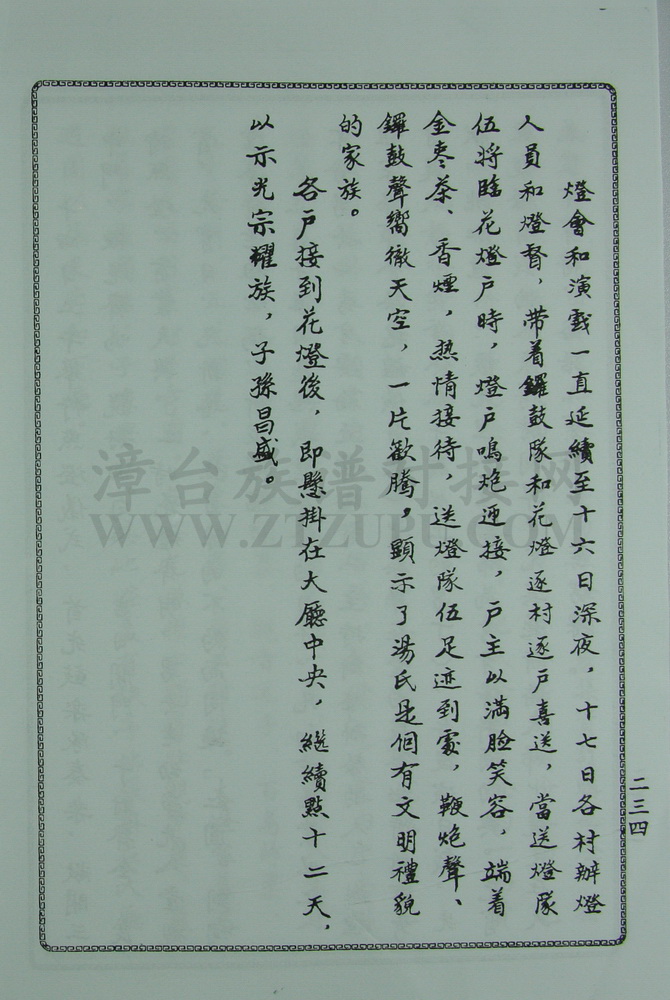 燈會和演戲一直延續至十六日深夜，十七日各村辦燈
人員和燈督，帶着鑼鼓隊和花燈逐村逐戶喜送，當送燈隊
伍將臨花燈戶時，燈戶鳴炮迎接，戶主以滿臉笑容，端着
金棗茶、香煙，热情接待，送燈隊伍足迹到處，鞭炮聲、
鑼鼓聲嚮徹天空，一片歡騰。顯示了湯氏是個有文明禮貌
的家族。
各戶接到花燈後，即懸掛在大廳中央，繼續點十二天，
以示光宗耀族，子孫昌盛。
二三四
漳台族谱对接网
WWW.ZTZUPU.COM